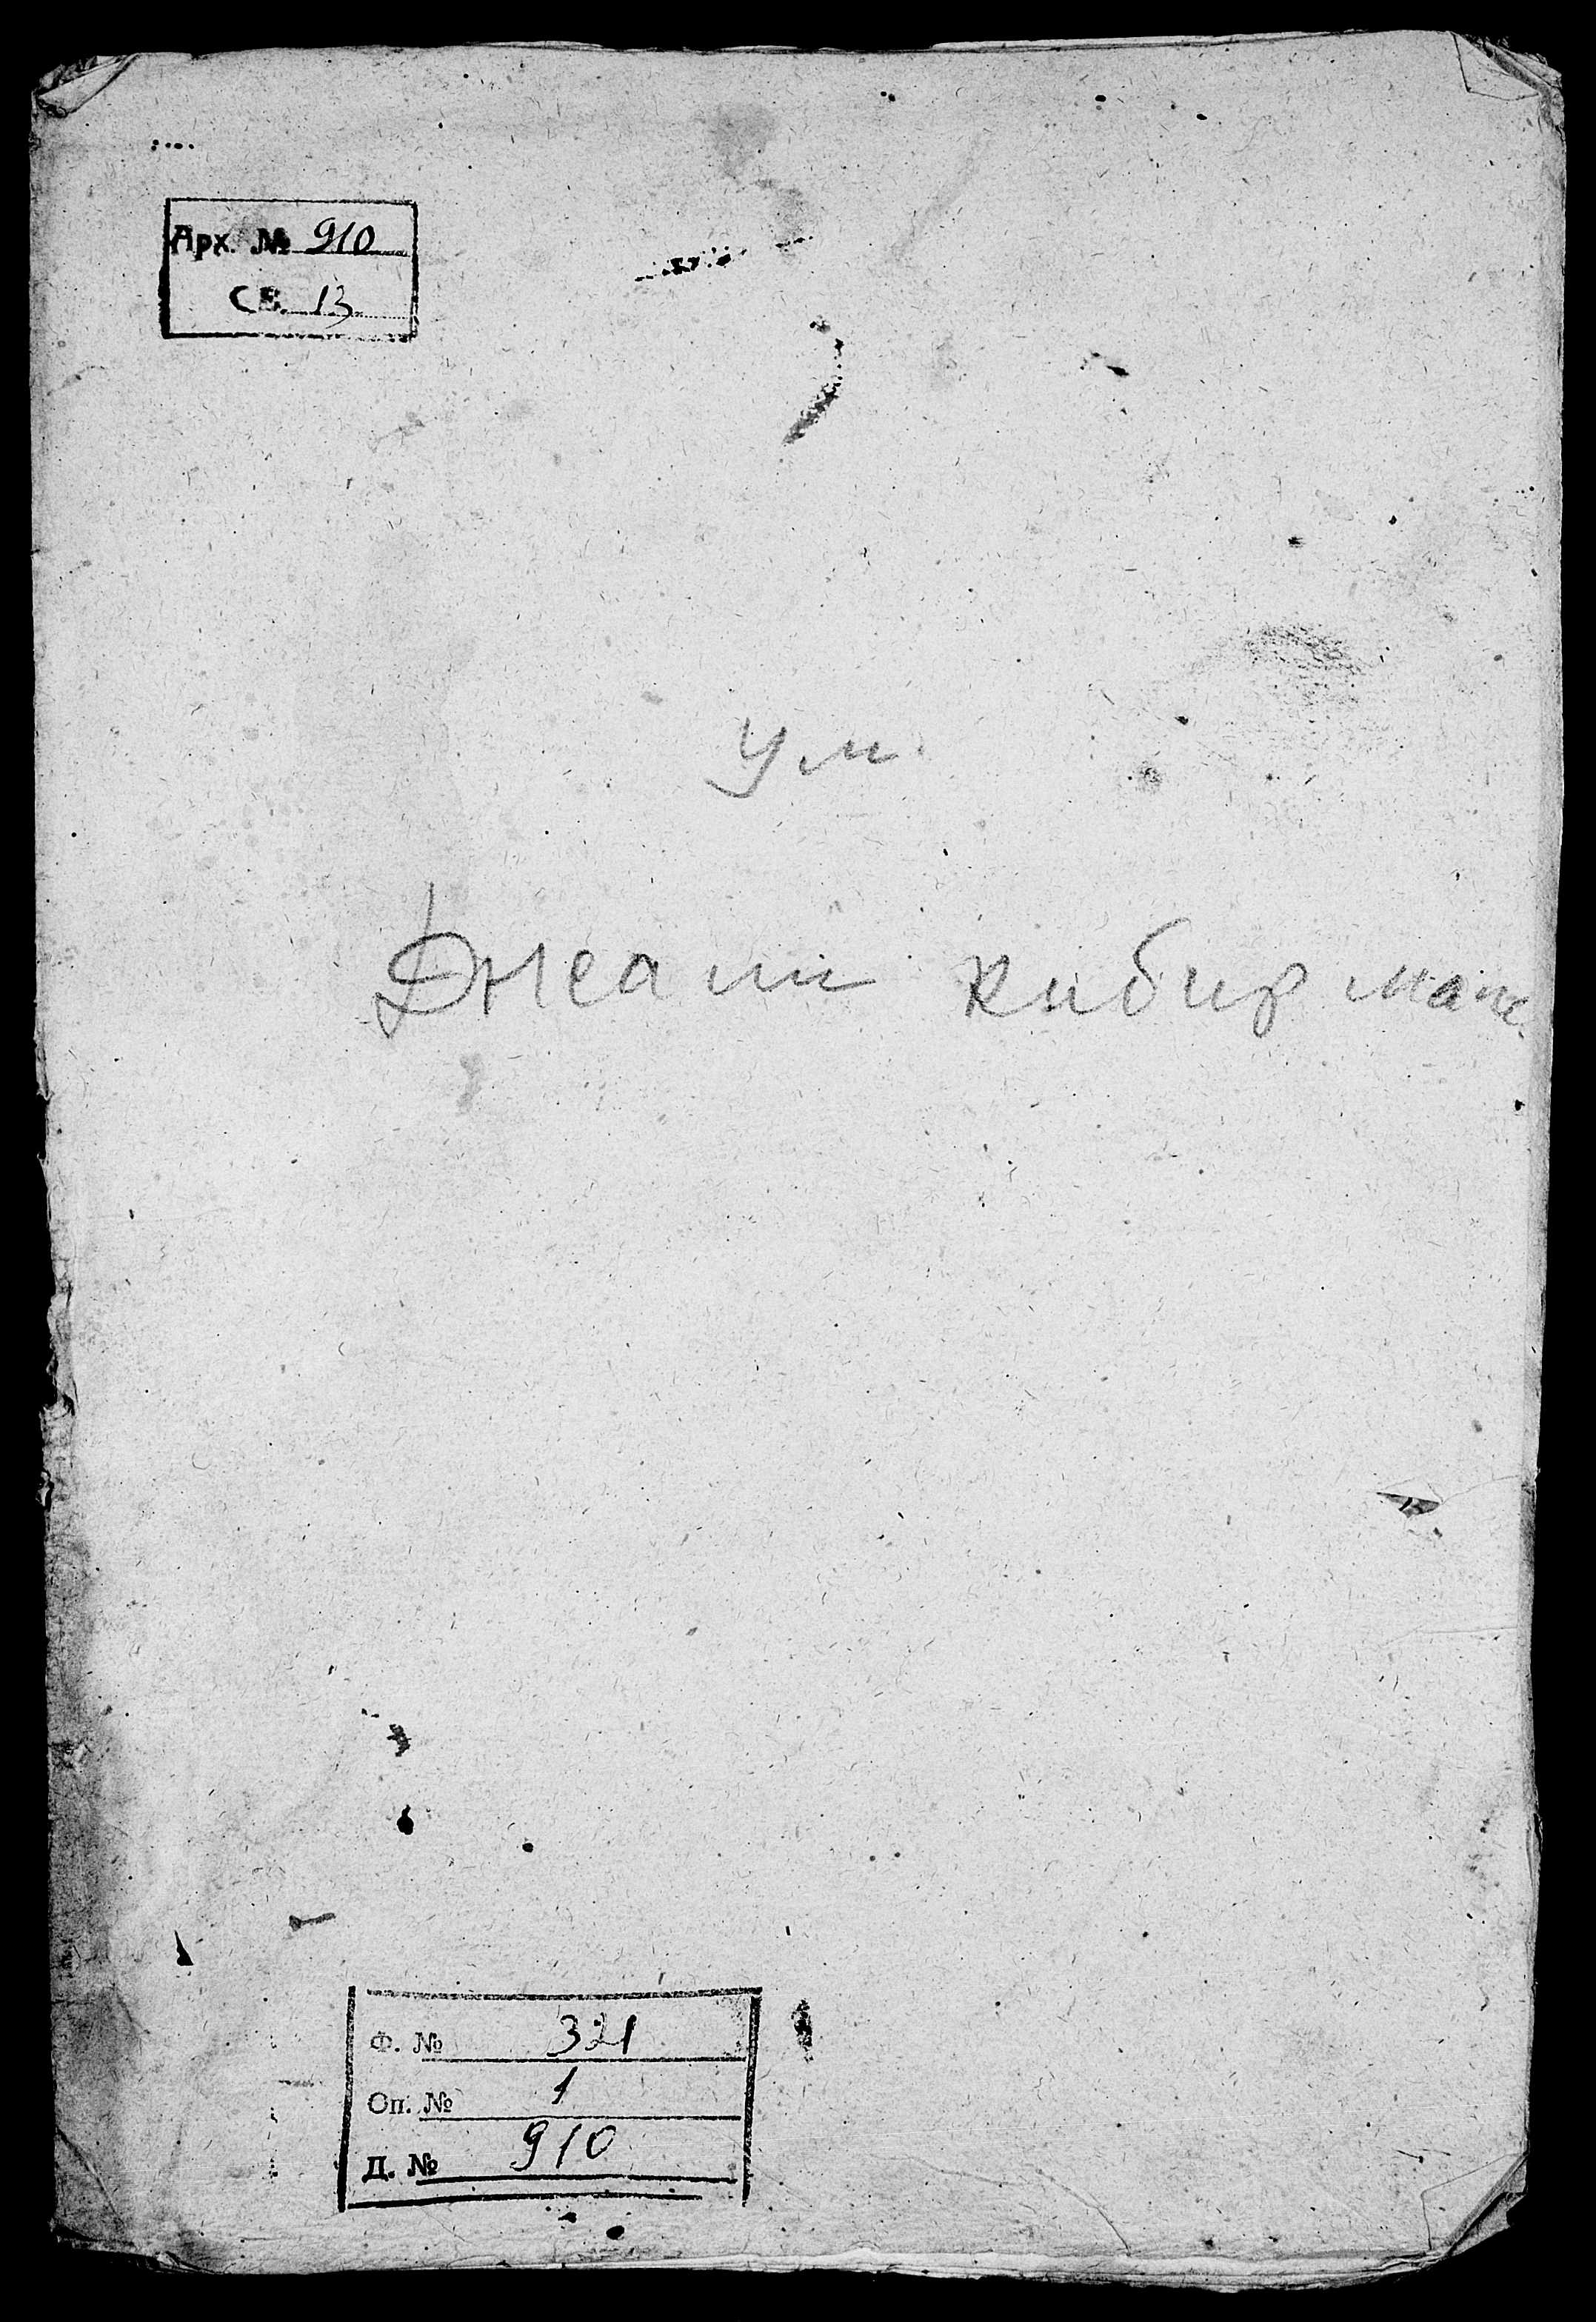 Арх. № 910
СВ. 13
Ум
Джами кибир
Ф. № 321
Оп. № 1
Д. № 910